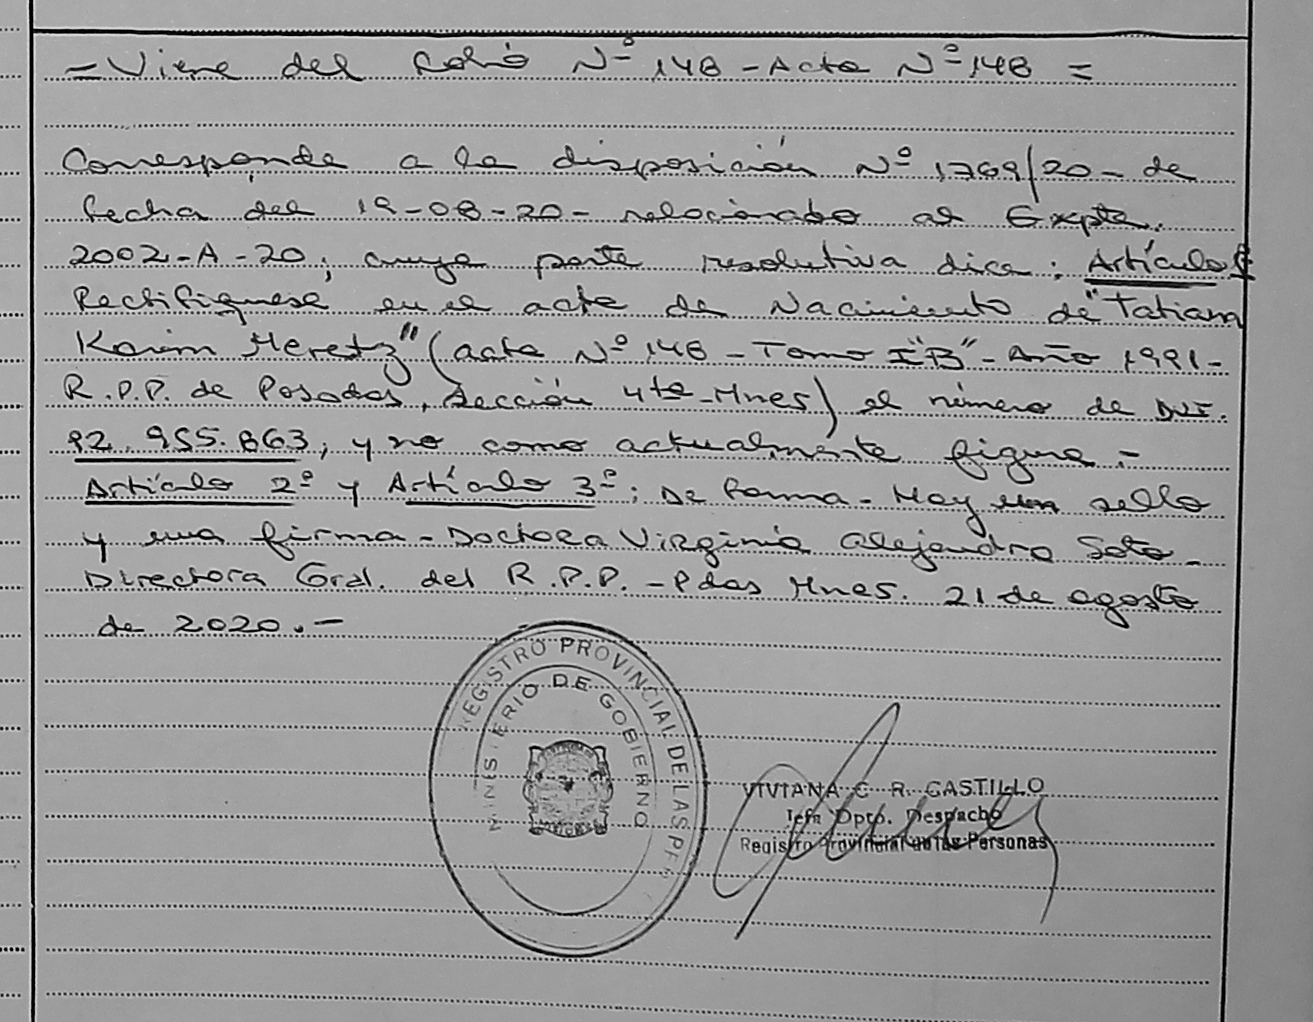 = Viene del Folio Nº 148 - Acta Nº 148 =
Corresponde a la disposición Nº 1769/20 - de
fecha del 19-08-20 - relacionado al Expte.
2002-A-20; cuya parte resolutiva dice: Artículo
Rectifiquese en el acta de Nacimiento de "Tatiana
Karim Meretz" (acta Nº 148 - Tomo I "B" - Año 1991 -
R.P.P. de Posadas, Sección 4ta - Mnes) el número de DNI.
92.955.863, y no como actualmente figura.-
Artículo 2º y Artículo 3º: De forma - Hay un sello
y una firma - Doctora Virginia Alejandra Soto -
Directora Gral. del R.P.P. - Pdas Mnes. 21 de agosto
de 2020.-
REGISTRO PROVINCIAL DE LAS PER
MINISTERIO DE GOBIERNO
VIVIANA C. R. CASTILLO
Jefa Dpto. Despacho
Registro Provincial de las Personas